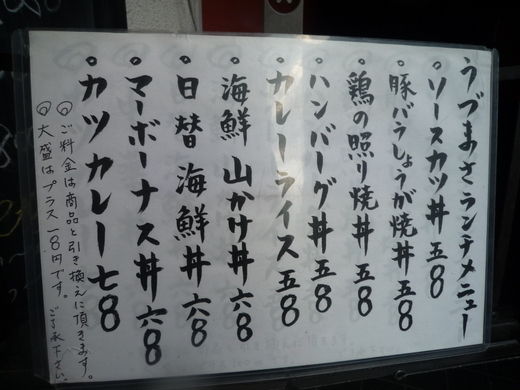 うづまさランチメニュー
。ソースカツ丼 五8
。豚バラしょうが焼丼 五8
。鶏の照り焼丼 五8
。ハンバーグ丼 五8
。カレーライス 五8
。海鮮 山かけ丼 六8
。日替 海鮮丼 六8
。マーボーナス丼 六8
。カツカレー 七8
◎ご料金は商品と引き換えに頂きます。
◎大盛はプラス一8円です。ご了承下さい。